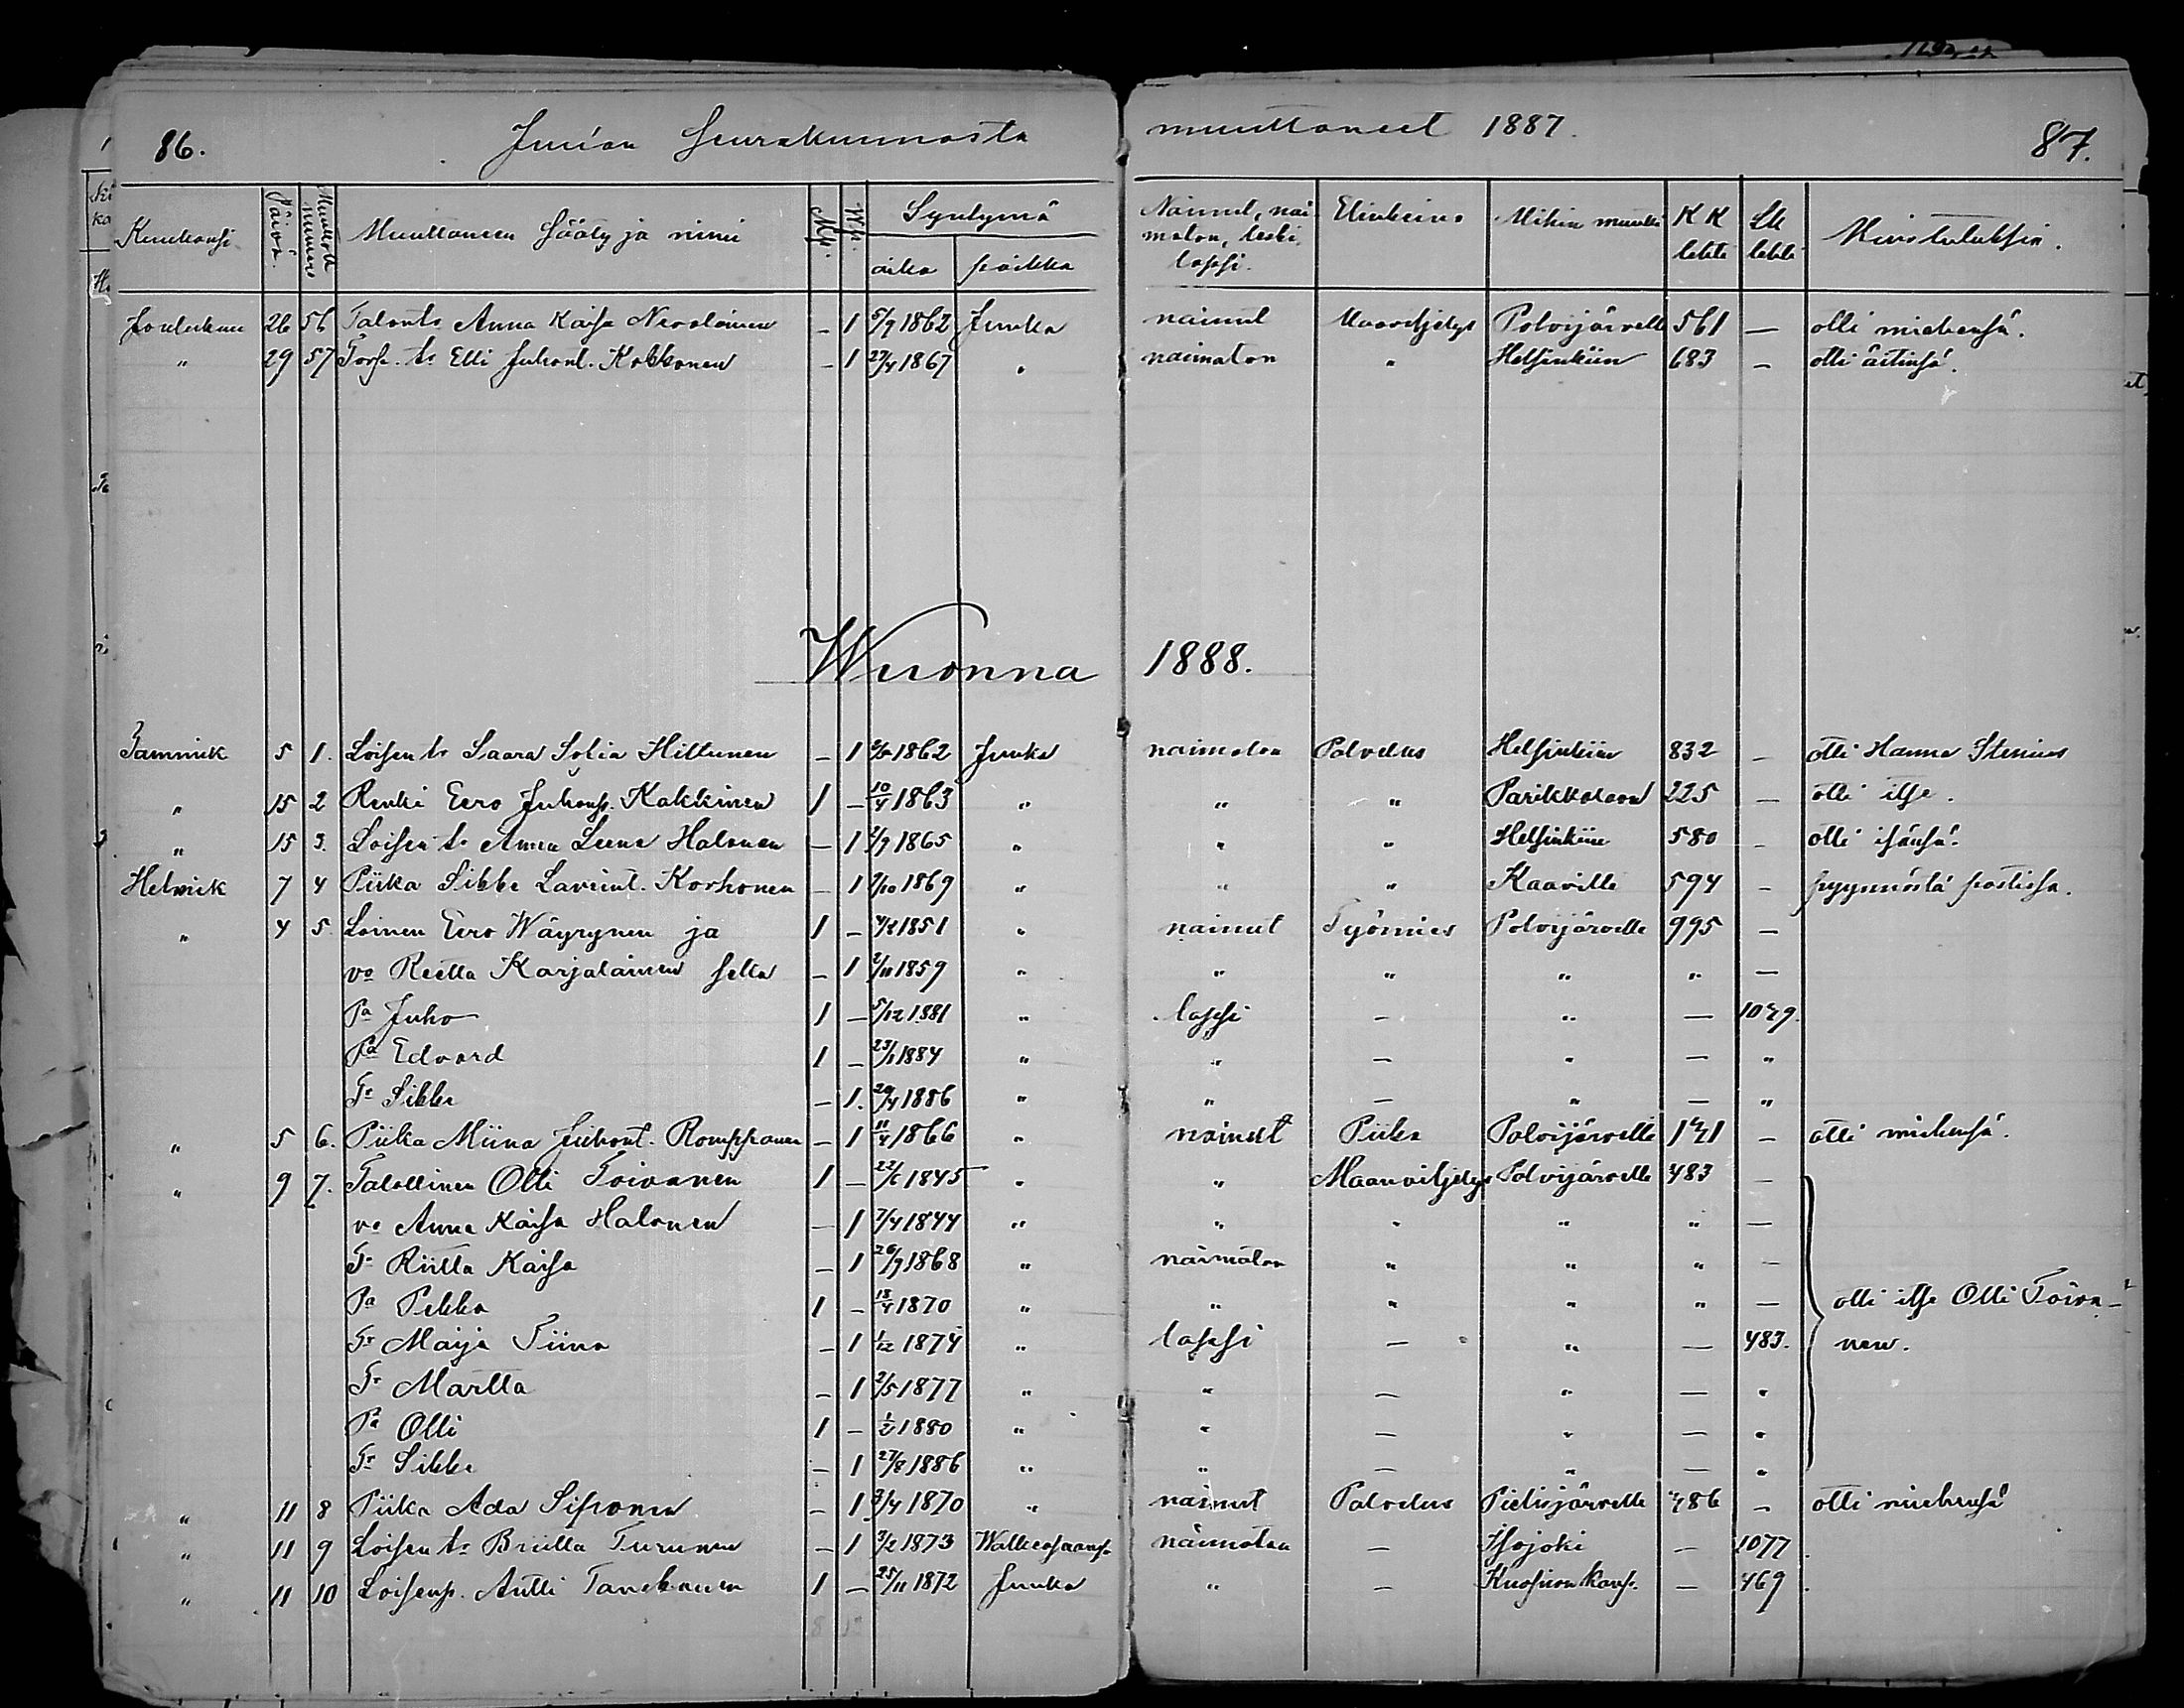 86. Juuan Seurakunnasta muuttaneet 1887. 87.
Kuukausi Päivä. Muutto numero Muuttaneen Sääty ja nimi Mp. Wp. Syntymä aika paikka Nainut, naimaton, leski, lapsi. Elinkeino Mihin muutti KK lehti LK lehti Muistutuksia.
Joulukuu 26 56 Talont: Anna Kaisa Nevalainen – 1 5/9 1862 Juuka nainut Maaviljelys Polvijärvelle 561 – otti miehensä.
" 29 57 Torp. tr Elli Juhont. Kokkonen – 1 27/4 1867 " naimaton " Helsinkiin 683 – otti äitinsä.
Wuonna 1888.
Tammik 5 1. Loisen tr Saara Sofia Hiltunen – 1 1862 Juuka naimaton Palvelus Helsinkiin 832 – otti Hanna Stenius
" 15 2 Renki Eero Juhonp. Kakkinen 1 – 10/4 1863 " " " Parikkalaan 225 – otti itse.
" 15 3. Loisen tr Anna Leena Halonen – 1 2/9 1865 " " " Helsinkiin 580 – otti isänsä.
Helmik 7 4 Piika Sikke Laurint. Korhonen – 1 7/10 1869 " " " Kaaville 594 – pyynnöstä postissa.
" 4 5 Loinen Eero Wäyrynen ja 1 – 4/2 1851 " nainut Työmies Polvijärvelle 995 –
vo Reetta Karjalainen sekä – 1 2/11 1859 " " " " " –
Pa Juho 1 – 5/12 1881 " lapsi – " – 1049.
Pa Edvard 1 – 23/1 1884 " " – " – "
Tr Sikke – 1. 20/4 1886 " " – " – "
" 5 6. Piika Miina Juhont. Romppanen – 1 11/4 1866 " nainut Piika Polvijärvelle 141 – otti miehensä.
" 9 7. Talollinen Olli Toivanen 1 – 22/6 1845 " " Maanviljelys Polvijärvelle 483 –
vo Anna Kaisa Halonen – 1 7/4 1844 " " " " " –
Tr Riitta Kaisa – 1 26/9 1868 " naimaton " " " –
Pa Pekka 1 – 18/4 1870 " " " " " – otti itse Olli Toiva-
Tr Maija Tiina – 1 1/12 1874 " lapsi – " – 483. nen.
Tr Martta – 1 2/5 1877 " " – " – "
Pa Olli 1 – 1/2 1880 " " – " – "
Tr Sikke – 1 27/8 1886 " " – " – "
" 11 8 Piika Ada Sisonen – 1 3/4 1870 " nainut Palvelus Pielisjärvelle 486 – otti miehensä
" 11 9 Loisen tr Briitta Turunen – 1 3/2 1873 naimaton – Isojoki – 1077.
" 11 10 Loisenp. Antti Tanskanen 1 – 25/11 1872 Juuka " – Kuopion kaup. – 469.